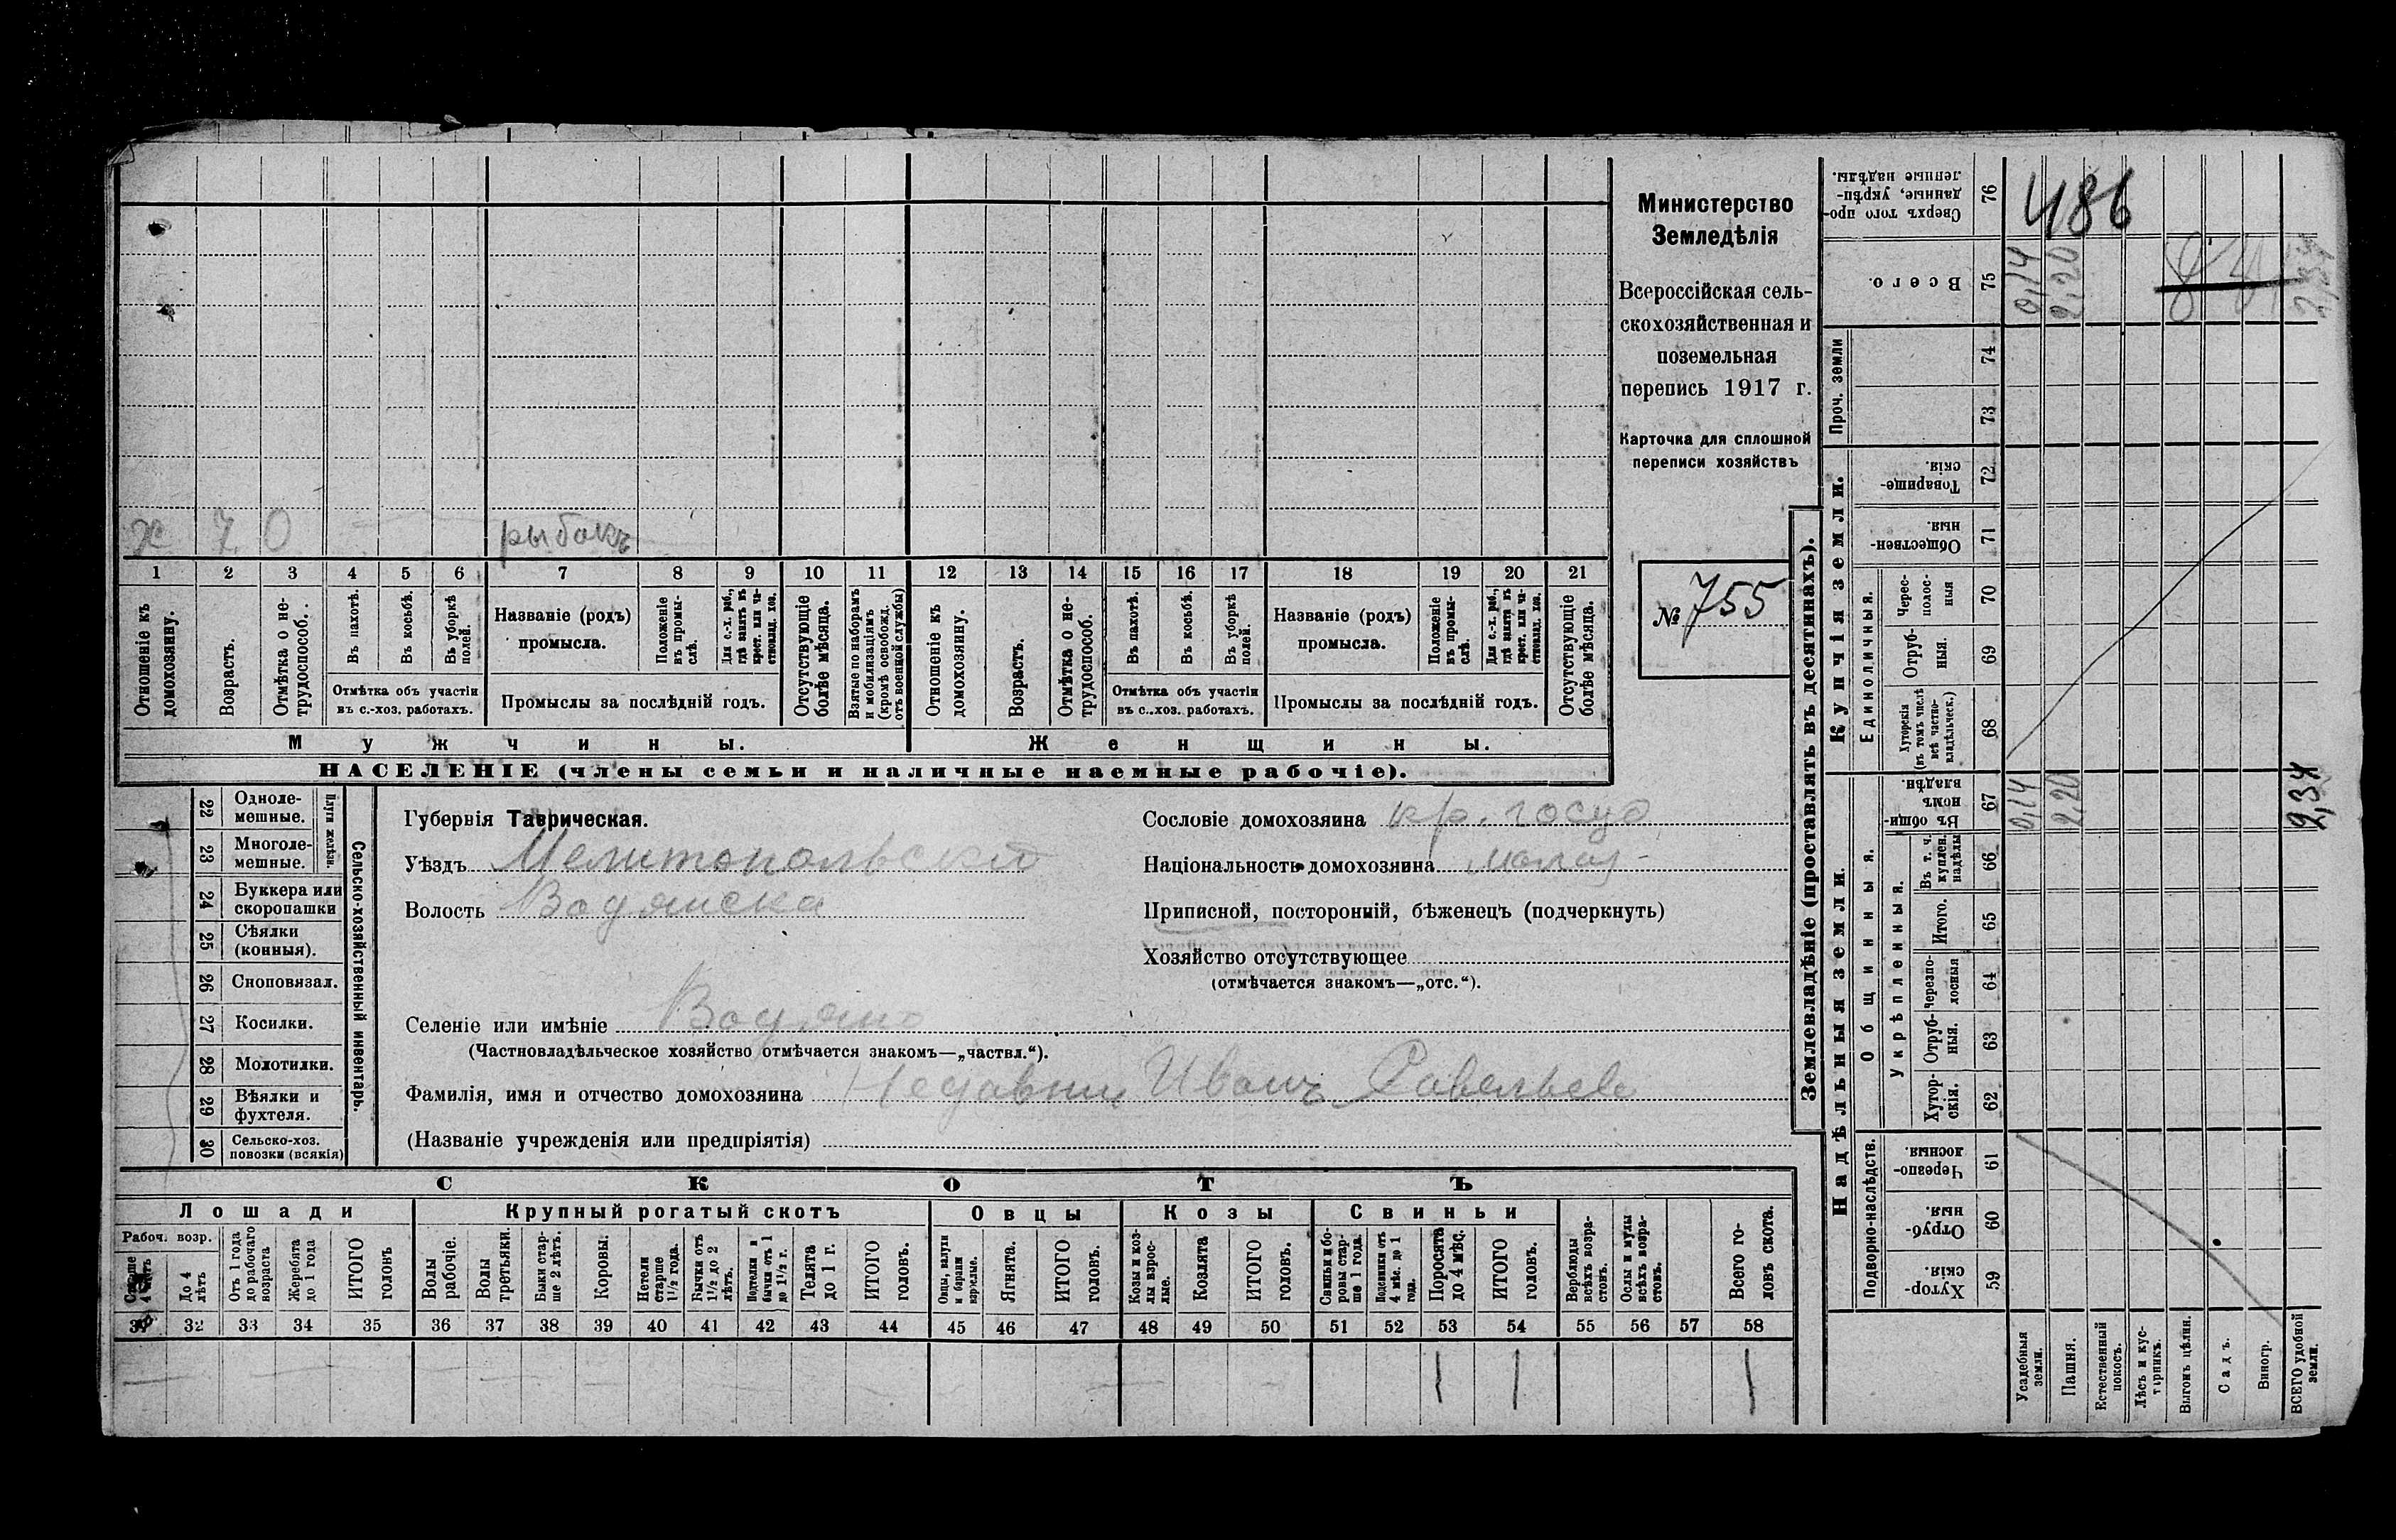 Министерство
Земледѣлія
Всероссійская сель-
скохозяйственная и
поземельная
перепись 1917 г.
Карточка для сплошной
переписи хозяйствъ
№ 755
х 70 рыбакъ
1 2 3 4 5 6 7 8 9 10 11 12 13 14 15 16 17 18 19 20 21
Отношеніе къ
домохозяину.
Возрастъ.
Отмѣтка о не-
трудоспособ.
Въ пахотѣ.
Въ косьбѣ.
Въ уборкѣ
полей.
Отмѣтка объ участіи
въ с.-хоз. работахъ.
Названіе (родъ)
промысла.
Положеніе
въ промы-
слѣ.
Для с.-х. раб.,
гдѣ занятъ въ
крест. или ча-
стновлад. хоз.
Промыслы за послѣдній годъ.
Отсутствующіе
болѣе мѣсяца.
Взятые по наборамъ
и мобилизаціямъ
(кромѣ освобожд.
отъ военной службы)
Отношеніе къ
домохозяину.
Возрастъ.
Отмѣтка о не-
трудоспособ.
Въ пахотѣ.
Въ косьбѣ.
Въ уборкѣ
полей.
Отмѣтка объ участіи
въ с.-хоз. работахъ.
Названіе (родъ)
промысла.
Положеніе
въ промы-
слѣ.
Для с.-х. раб.,
гдѣ занятъ въ
крест. или ча-
стновлад. хоз.
Промыслы за послѣдній годъ.
Отсутствующіе
болѣе мѣсяца.
Мужчины. Женщины.
НАСЕЛЕНІЕ (члены семьи и наличные наемные рабочіе).
22 Одноле-
мешные.
23 Многоле-
мешные.
Плуги желѣзн.
24 Буккера или
скоропашки
25 Сѣялки
(конныя).
26 Сноповязал.
27 Косилки.
28 Молотилки.
29 Вѣялки и
фухтеля.
30 Сельско-хоз.
повозки (всякія)
Сельско-хозяйственный инвентарь.
Губернія Таврическая.
Уѣздъ Мелитопольскій
Волость Водянска
Селеніе или имѣніе Водяно
(Частновладѣльческое хозяйство отмѣчается знакомъ—„частвл.“).
Фамилія, имя и отчество домохозяина Иванъ Савельев
(Названіе учрежденія или предпріятія)
Сословіе домохозяина кр. госуд
Національность домохозяина малор
Приписной, посторонній, бѣженецъ (подчеркнуть)
Хозяйство отсутствующее
(отмѣчается знакомъ—„отс.“).
СКОТЪ
Лошади Крупный рогатый скотъ Овцы Козы Свиньи
Рабоч. возр.
Старше
4 лѣтъ
До 4
лѣтъ
Отъ 1 года
до рабочаго
возраста
Жеребята
до 1 года
ИТОГО
головъ
Волы
рабочіе.
Волы
третьяки.
Быки стар-
ше 2 лѣтъ.
Коровы.
Нетели
старше
1½ года.
Бычки отъ
1½ до 2
лѣтъ.
Нетелки и
бычки отъ 1
до 1½ г.
Телята
до 1 г.
ИТОГО
головъ.
Овцы, валухи
и бараны
взрослые.
Ягнята.
ИТОГО
головъ.
Козы и коз-
лы взрос-
лые.
Козлята
ИТОГО
головъ.
Свиньи и бо-
ровы стар-
ше 1 года.
Подсвинки отъ
4 мѣс. до 1
года.
Поросята
до 4 мѣс.
ИТОГО
головъ.
Верблюды
всѣхъ возра-
стовъ.
Ослы и мулы
всѣхъ возра-
стовъ.
Всего го-
ловъ скота.
31 32 33 34 35 36 37 38 39 40 41 42 43 44 45 46 47 48 49 50 51 52 53 54 55 56 57 58
1 1 1
Землевладѣніе (проставлять въ десятинахъ).
Надѣльныя земли. Купчія земли. Проч. земли
Подворно-наслѣдств.
Общинныя.
Укрѣпленныя.
Единоличныя.
Хутор-
скія. 59
Отруб-
ныя. 60
Черезпо-
лосныя. 61
Хутор-
скія. 62
Отруб-
ныя. 63
Черезпо-
лосныя 64
Итого. 65
Въ т. ч.
куплен.
надѣлы 66
Въ общи-
номъ
владѣн. 67
Хуторскія
(въ томъ числѣ
всѣ частно-
владѣльческ.) 68
Отруб-
ныя. 69
Черес-
полос-
ныя 70
Обществен-
ныя. 71
Товарище-
скія. 72
73
74
Всего. 75
Сверхъ того про-
данные, укрѣп-
ленные надѣлы. 76
Усадебныя
земли.
Пашня.
Естественный
покосъ.
Лѣсъ и кус-
тарникъ.
Выгонъ цѣлин.
Садъ.
Виногр.
ВСЕГО удобной
земли.
0,14 2,20 2,34
0,14 2,20 2,34
486